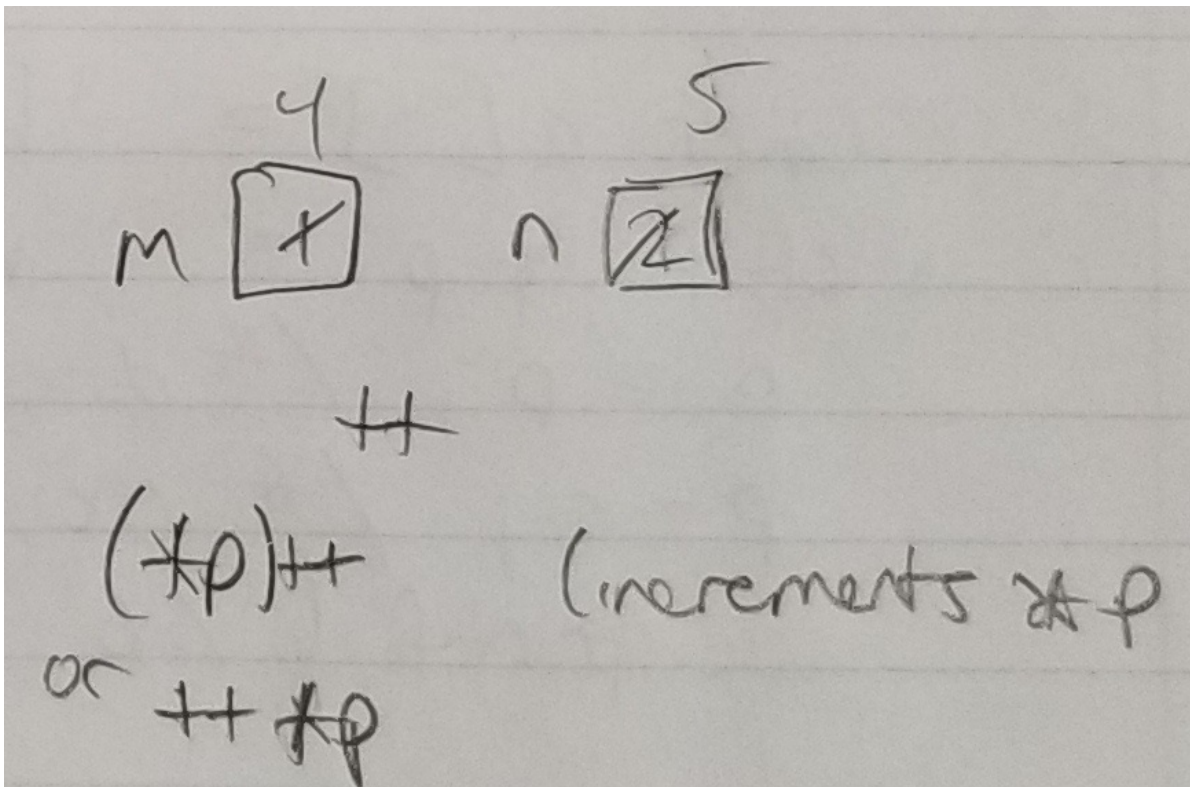 4 5
m 1 n 2
++
(*p)++ (increments *p
or ++ *p